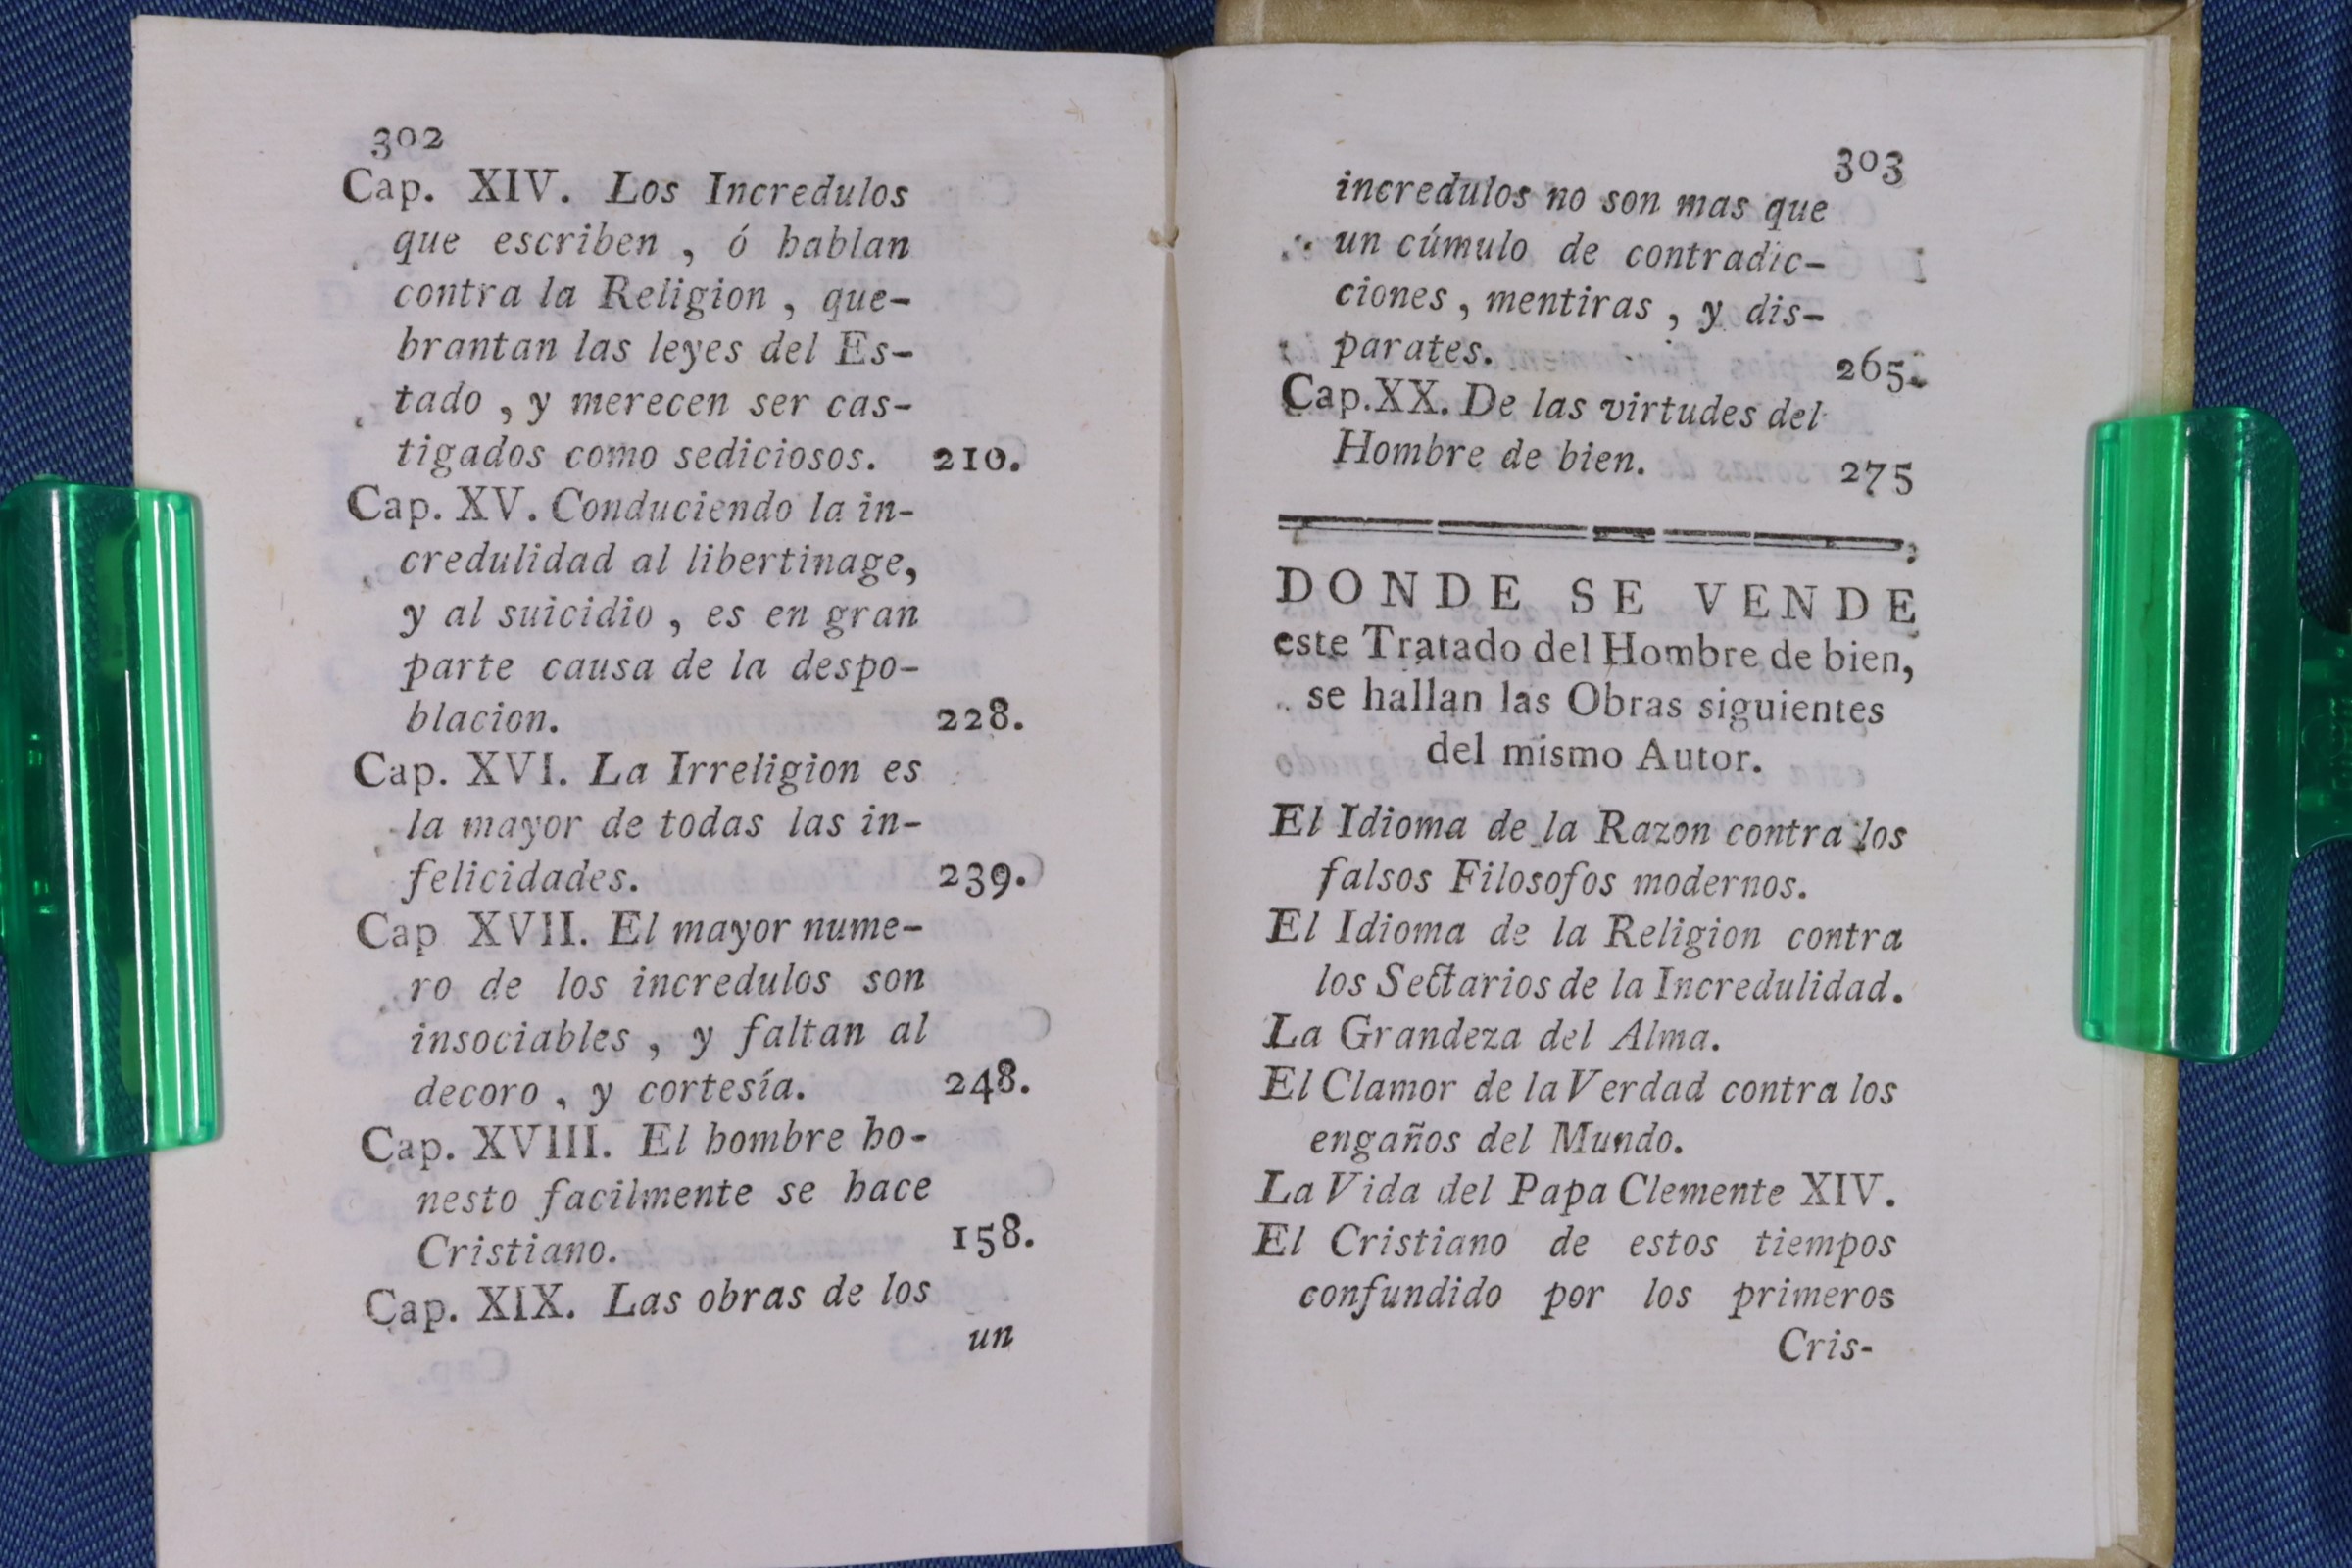 302
Cap. XIV. Los Incredulos
que escriben , ó hablan
contra la Religion , que-
brantan las leyes del Es-
tado , y merecen ser cas-
tigados como sediciosos. 210.
Cap. XV. Conduciendo la in-
credulidad al libertinage,
y al suicidio , es en gran
parte causa de la despo-
blacion. 228.
Cap. XVI. La Irreligion es
la mayor de todas las in-
felicidades. 239.
Cap XVII. El mayor nume-
ro de los incredulos son
insociables , y faltan al
decoro , y cortesía. 248.
Cap. XVIII. El hombre ho-
nesto facilmente se hace
Cristiano. 158.
Cap. XIX. Las obras de los
un
303
incredulos no son mas que
un cúmulo de contradic-
ciones , mentiras , y dis-
parates. 265.
Cap.XX. De las virtudes del
Hombre de bien. 275
DONDE SE VENDE
este Tratado del Hombre de bien,
se hallan las Obras siguientes
del mismo Autor.
El Idioma de la Razon contra los
falsos Filosofos modernos.
El Idioma de la Religion contra
los Sectarios de la Incredulidad.
La Grandeza del Alma.
El Clamor de la Verdad contra los
engaños del Mundo.
La Vida del Papa Clemente XIV.
El Cristiano de estos tiempos
confundido por los primeros
Cris-